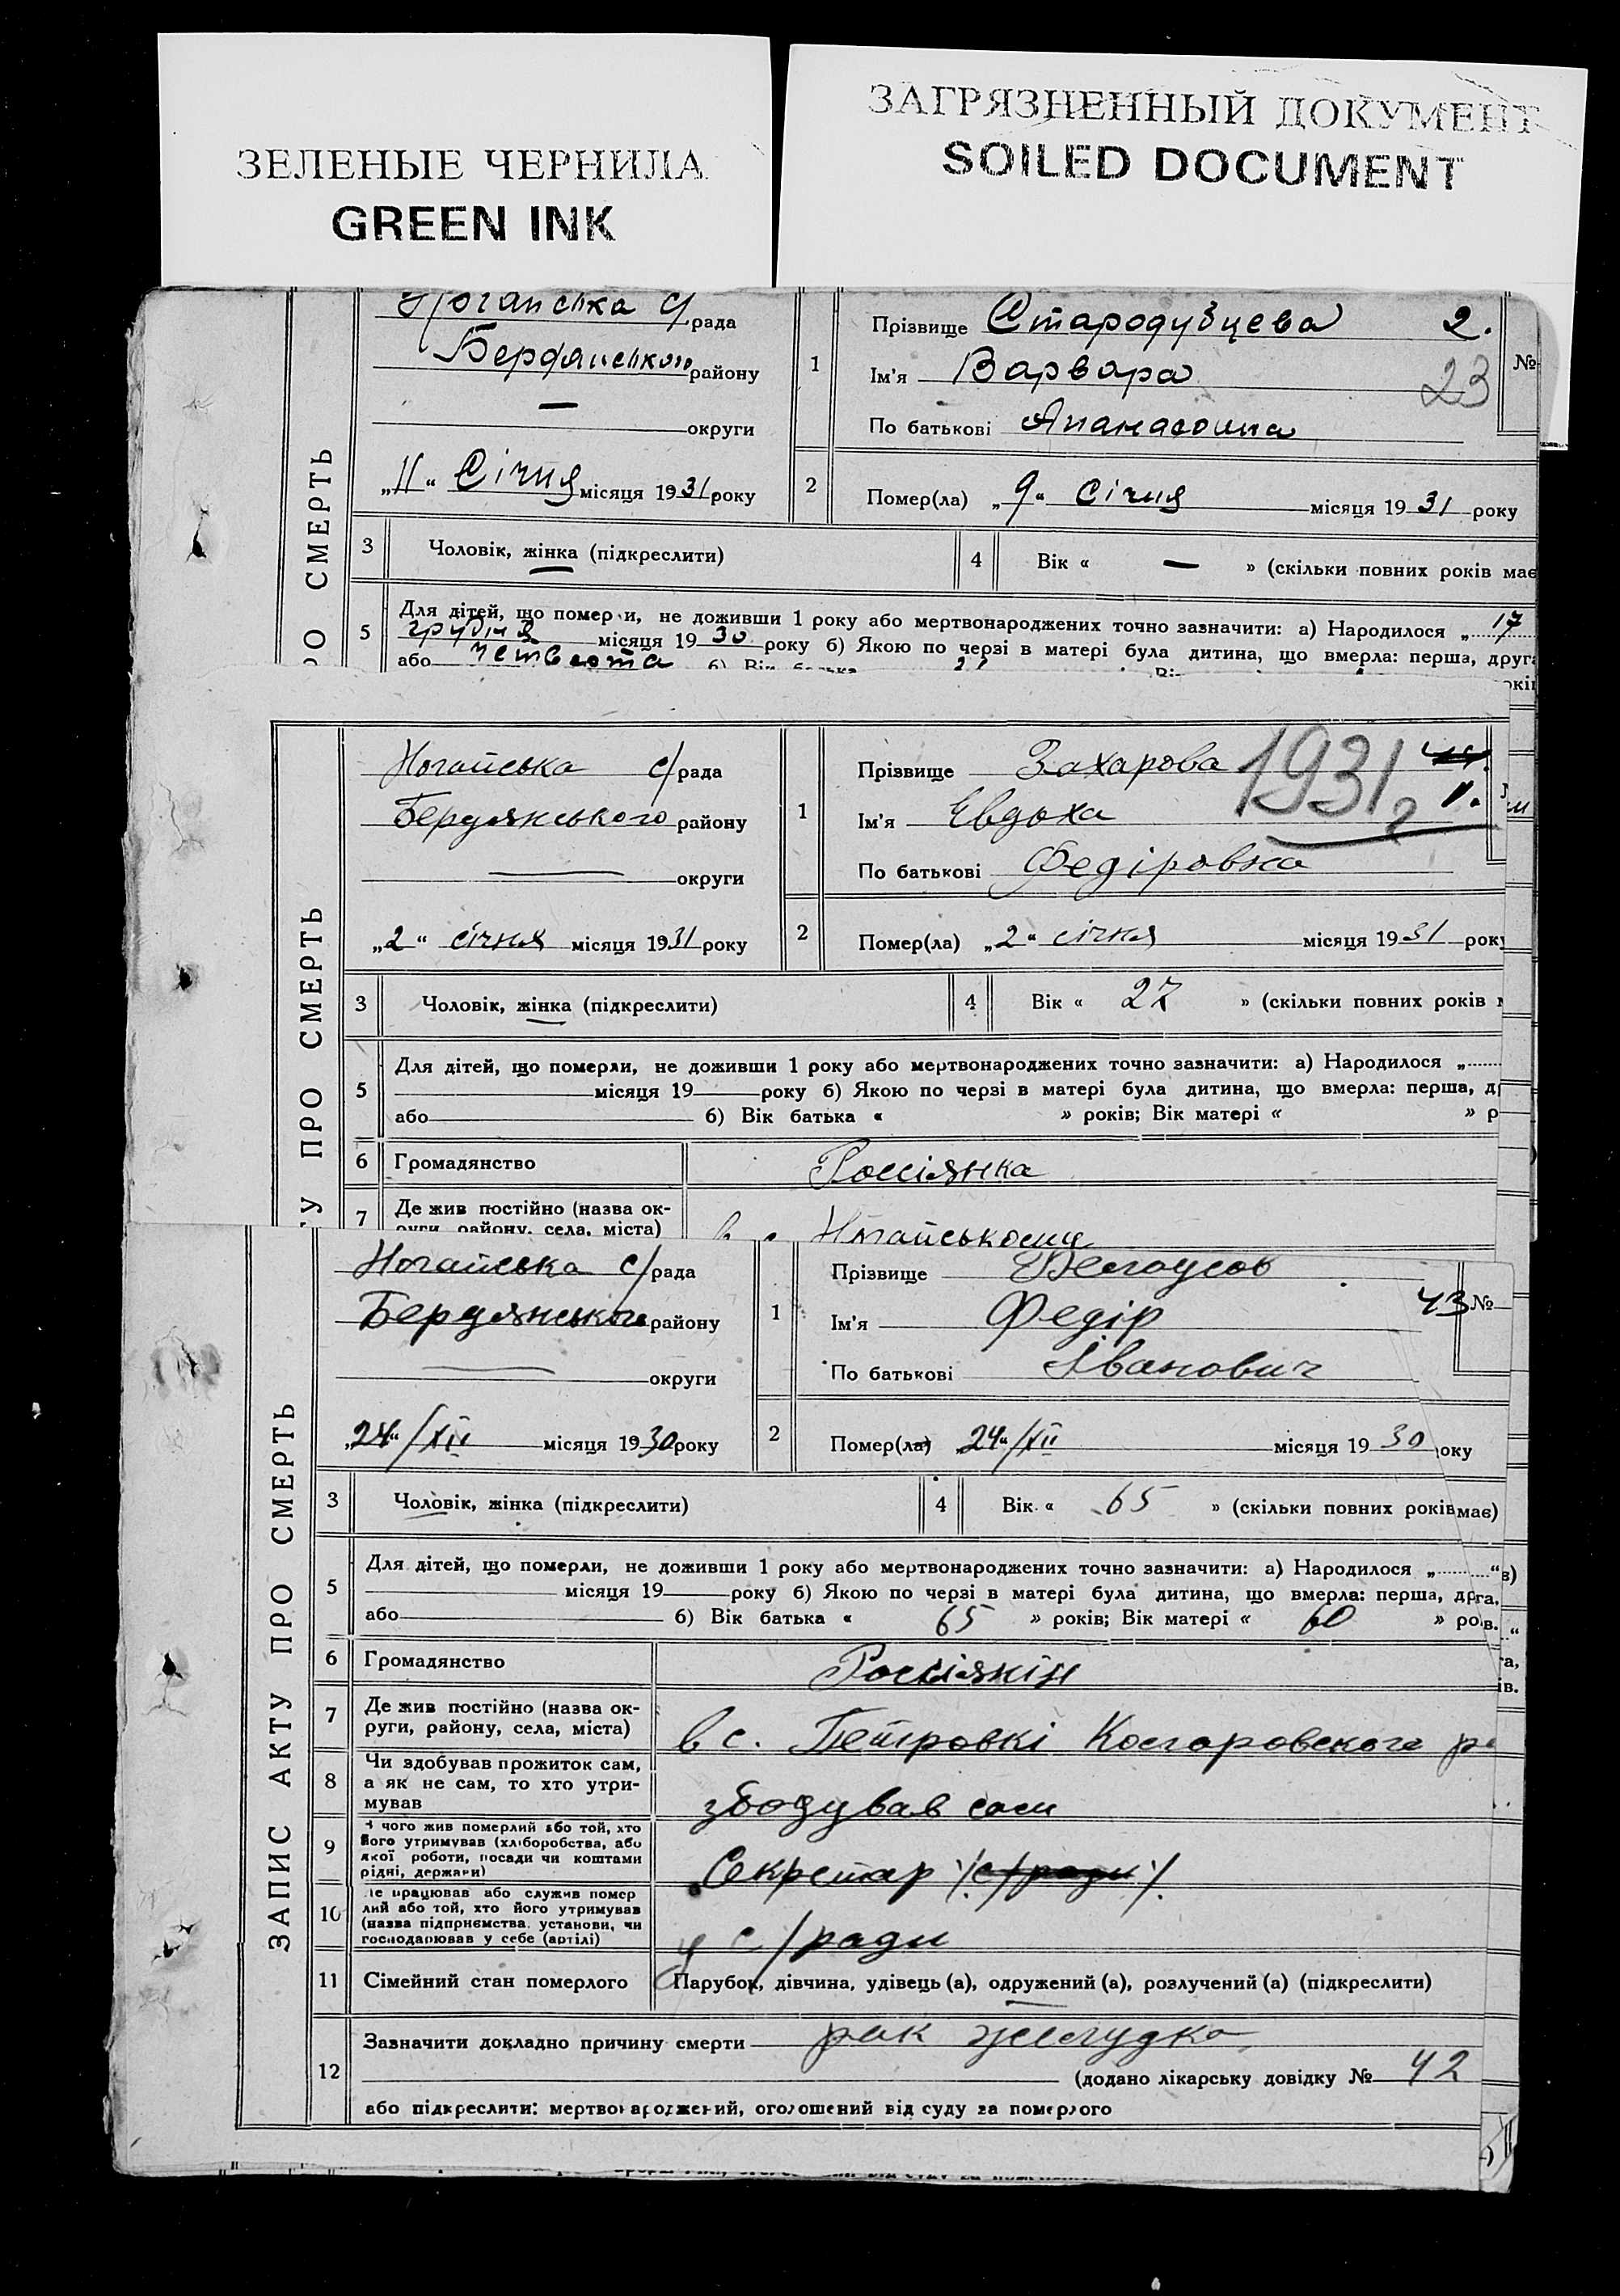 ЗЕЛЕНЫЕ ЧЕРНИЛА
GREEN INK
ЗАГРЯЗНЕННЫЙ ДОКУМЕНТ
SOILED DOCUMENT
РО СМЕРТЬ
с/рада
Бердянського району
— округи
„11“ Січня місяця 1931 року
1
Прізвище Стародубцева 2.
Ім'я Варвара 23
По батькові Апанасовна
№
2
Помер(ла) „9“ січня місяця 1931 року
3 Чоловік, жінка (підкреслити)
4 Вік « — » (скільки повних років має
5 Для дітей, що померли, не доживши 1 року або мертвонароджених точно зазначити: а) Народилося „17
грудня місяця 1930 року б) Якою по черзі в матері була дитина, що вмерла: перша, друга
або четверта б) Вік батька
У ПРО СМЕРТЬ
Ногайська с/рада
Бердянського району
— округи
„2“ січня місяця 1931 року
1
Прізвище Захарова
1931
1.
Ім'я Евдоха
По батькові Федіровна
2
Помер(ла) „2“ січня місяця 1931 року
3 Чоловік, жінка (підкреслити)
4 Вік « 27 » (скільки повних років
5 Для дітей, що померли, не доживши 1 року або мертвонароджених точно зазначити: а) Народилося „
місяця 19 року б) Якою по черзі в матері була дитина, що вмерла: перша, др
або б) Вік батька « » років; Вік матері « » р
6 Громадянство Россіянка
7 Де жив постійно (назва ок-
руги, району, села, міста) в с. Ногайському
ЗАПИС АКТУ ПРО СМЕРТЬ
Ногайська с/рада
Бердянського району
— округи
„24“/XII місяця 1930 року
1
Прізвище Белоусов
Ім'я Федір
43 №
По батькові Іванович
2
Помер(ла) „24“/XII місяця 1930 року
3 Чоловік, жінка (підкреслити)
4 Вік « 65 » (скільки повних років має)
5 Для дітей, що померли, не доживши 1 року або мертвонароджених точно зазначити: а) Народилося „ “
місяця 19 року б) Якою по черзі в матері була дитина, що вмерла: перша, друга,
або б) Вік батька « 65 » років; Вік матері « 60 » ров.
6 Громадянство Россіянін
7 Де жив постійно (назва ок-
руги, району, села, міста) в с. Петровкі
8 Чи здобував прожиток сам,
а як не сам, то хто утри-
мував
збодував сам
9 З чого жив померлий або той, хто
його утримував (хліборобства, або
якої роботи, посади чи коштами
рідні, держави)
Секретар /с/ради/
10 Де працював або служив помер
лий або той, хто його утримував
(назва підприємства, установи, чи
господарював у себе (артілі)
у с/ради
11 Сімейний стан померлого Парубок, дівчина, удівець (а), одружений (а), розлучений (а) (підкреслити)
12 Зазначити докладно причину смерти рак желудка
(додано лікарську довідку № 42
або підкреслити: мертвонароджений, оголошений від суду за померлого